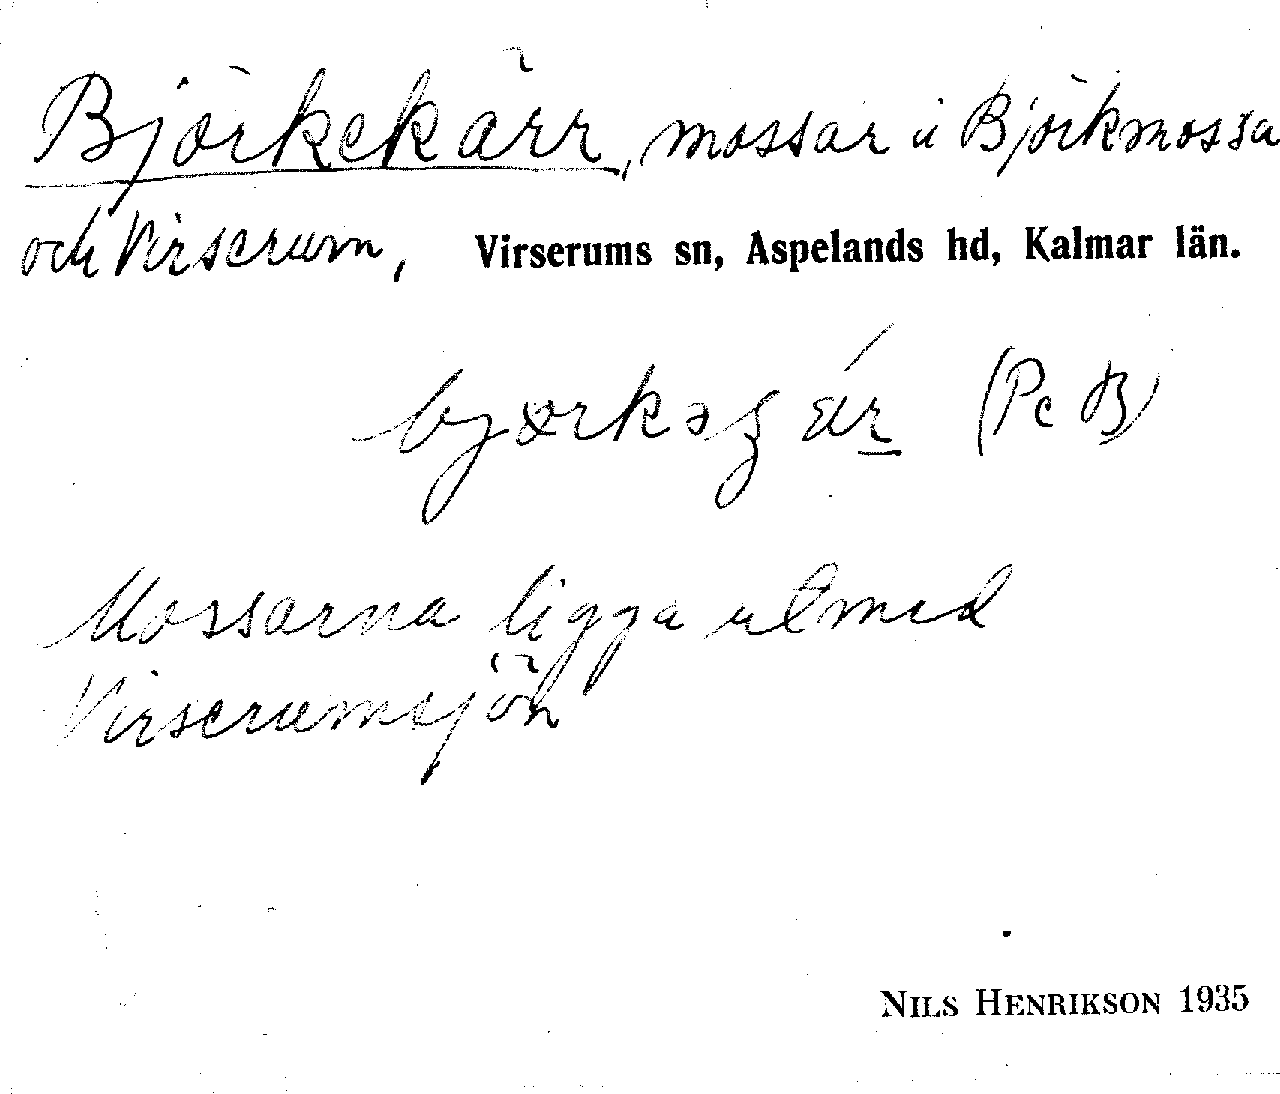 Björkekärr, mossar i Björkmossa
och Virserum, Virserums sn, Aspelands hd, Kalmar län.
(Pc B)
Mossarna ligga utmed
Virserumsjön
NILS HENRIKSON 1935